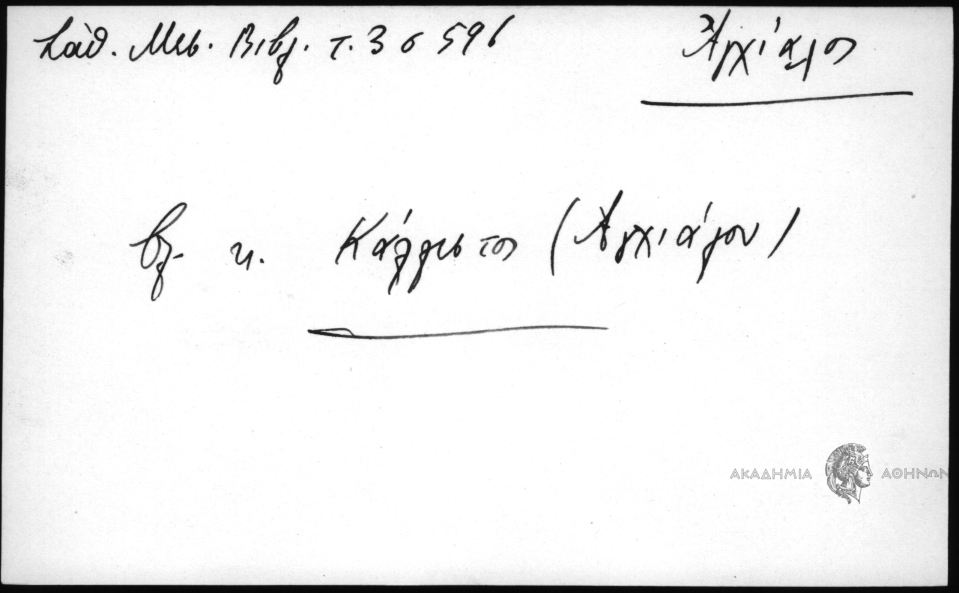 Σάθ. Μεσ. Βιβλ. τ. 3 σ 596
Ἀγχίαλος
βλ. κ. Κάλλιστος (Ἀγχιάλου)
ΑΚΑΔΗΜΙΑ ΑΘΗΝΩΝ